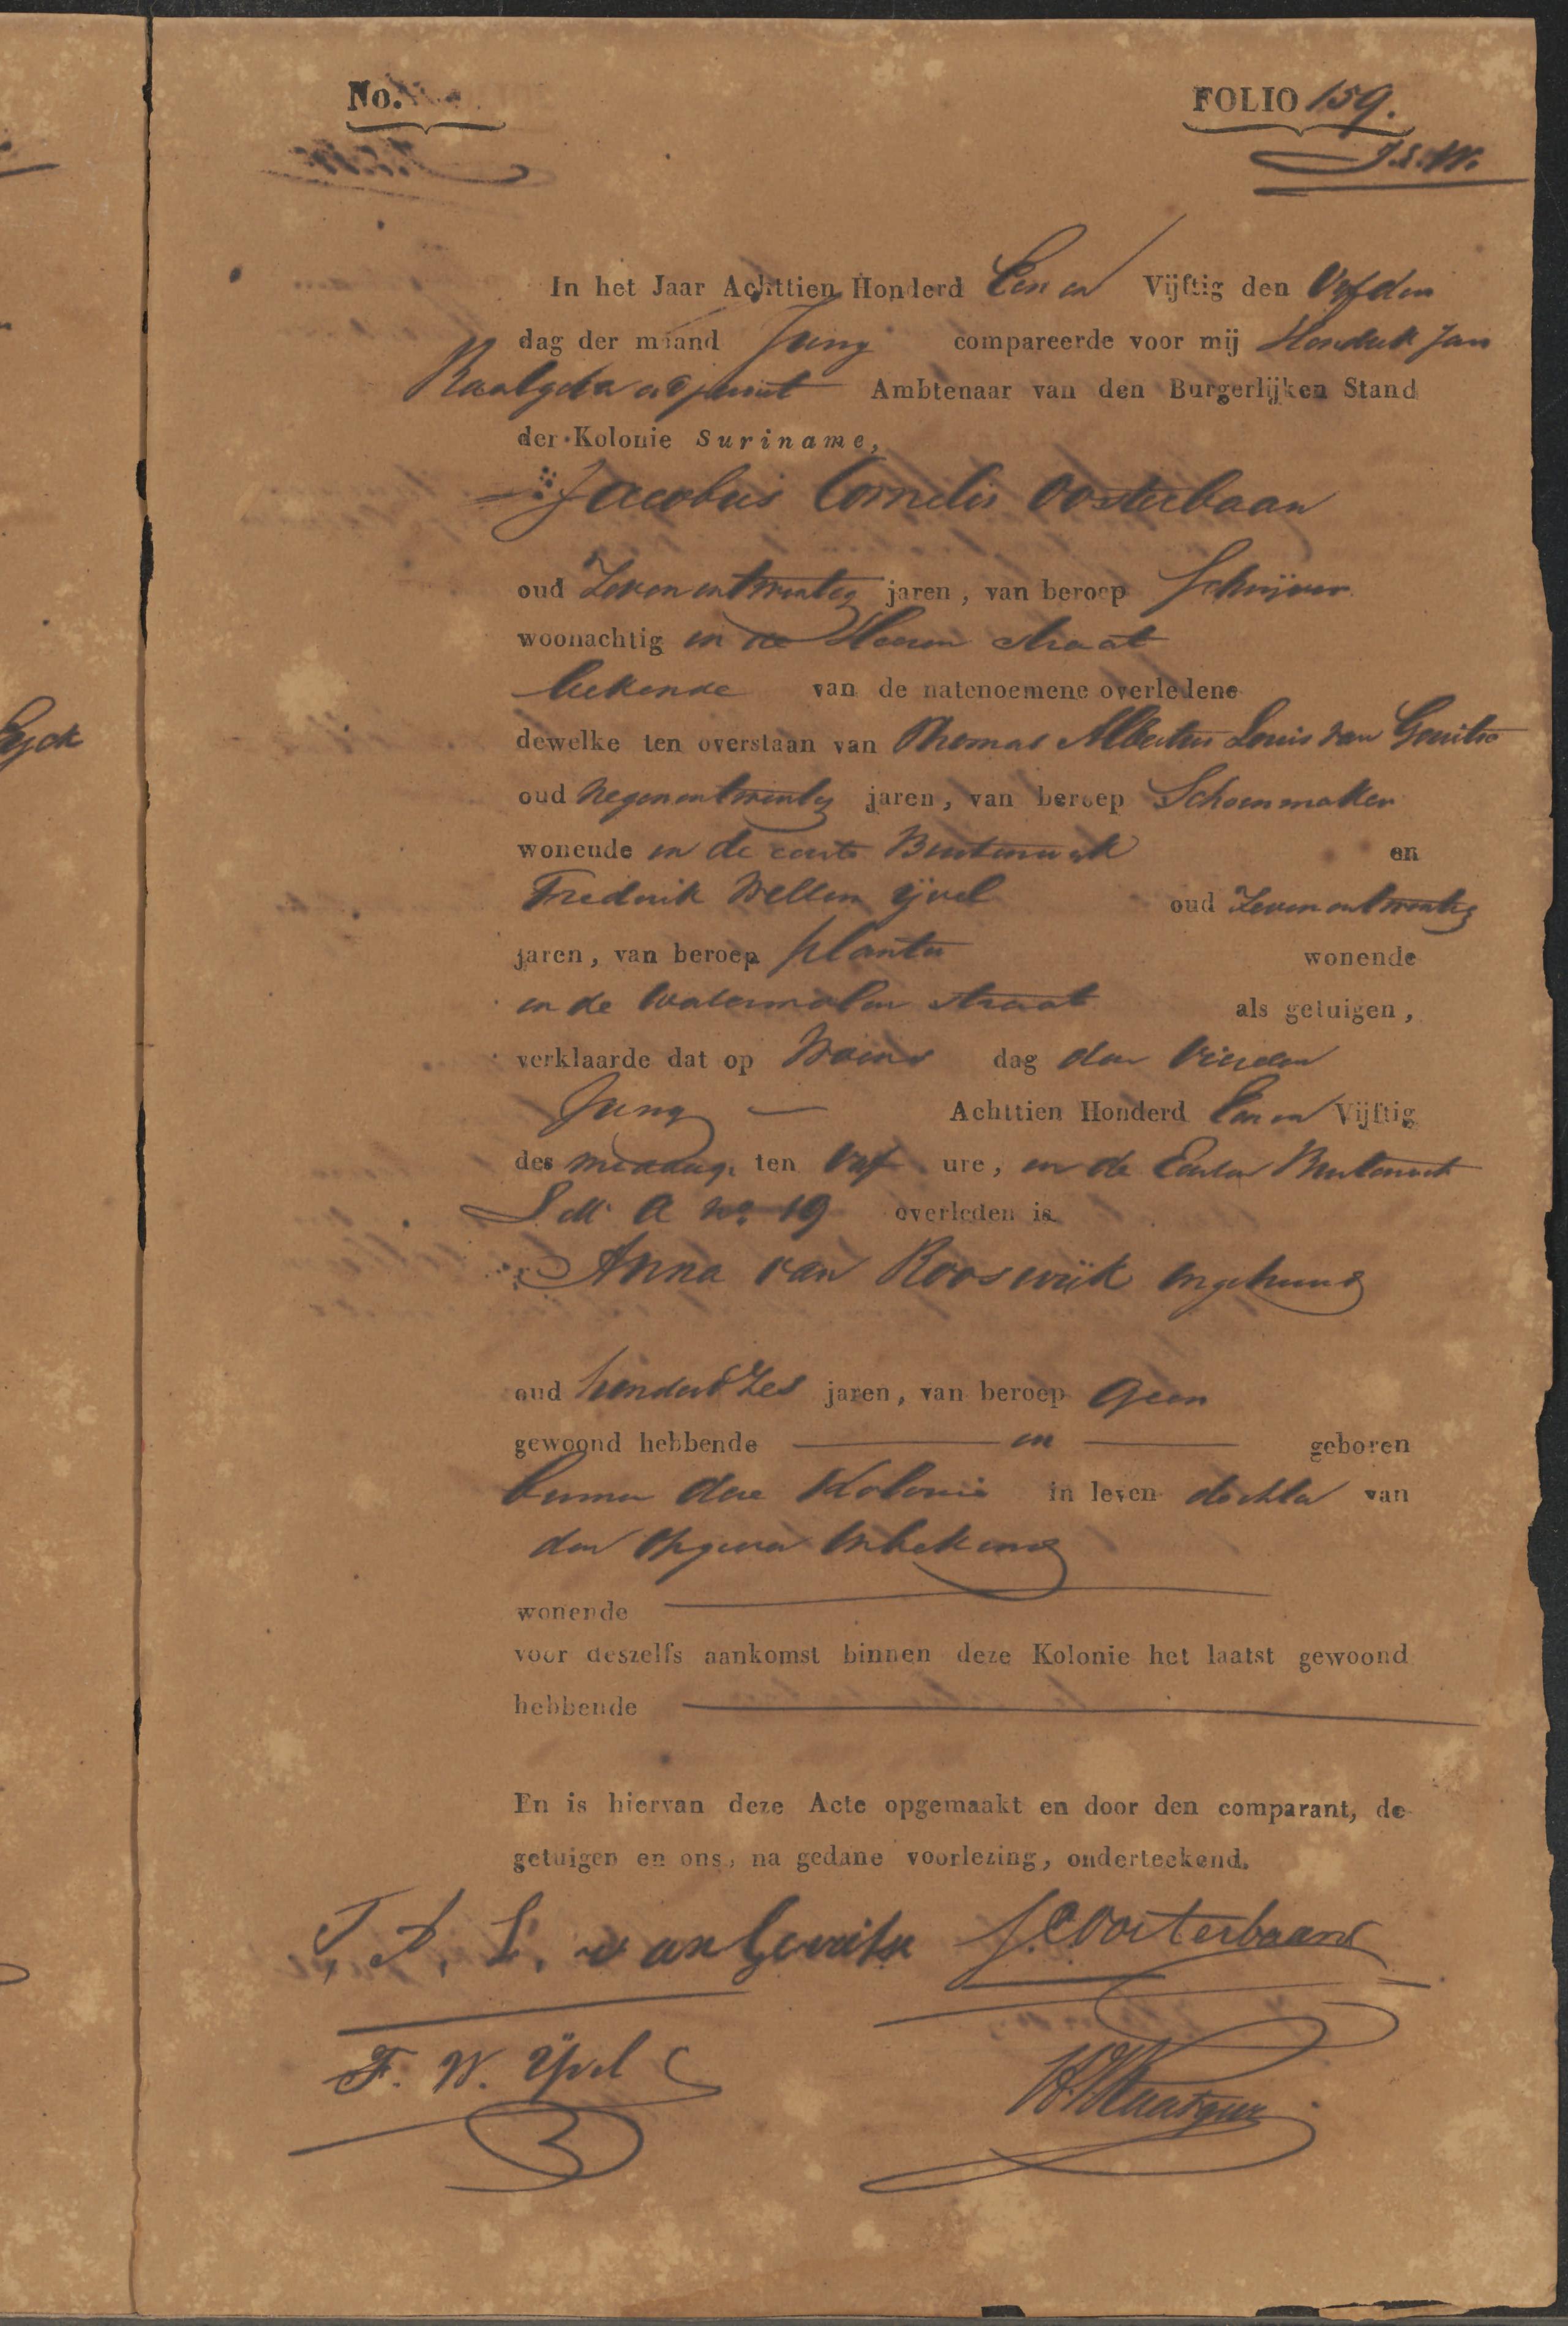 No. FOLIO 159.
In het Jaar Achttien Honderd Een en Vijftig den Vijfden
dag der maand Juny compareerde voor mij Hendrik Jan
adjunct Ambtenaar van den Burgerlijken Stand
der Kolonie Suriname,
Jacobus Cornelis Oosterbaan
oud Zeven en twintig jaren, van beroep Schrijver
woonachtig in de Heeren straat
bekende van de natenoemene overledene
dewelke ten overstaan van Thomas Albertus Louis van Gerritse
oud Negen en twintig jaren, van beroep Schoenmaker
wonende in de eerste Buitenwyk en
Frederik Willem Ijvel oud Zeven en twintig
jaren, van beroep planter wonende
in de Watermolen straat als getuigen,
verklaarde dat op Woens dag den Vierden
Juny — Achttien Honderd Een en Vijftig
des middags ten Vyf ure, in de Eerste Buitenwyk
Lett A No 19 overleden is
Anna van Rooswijk ongehuwd
oud honderd Zes jaren, van beroep Geen
gewoond hebbende — en — geboren
binnen deze Kolonie in leven dochter van
den Opgever Onbekend
wonende
voor deszelfs aankomst binnen deze Kolonie het laatst gewoond
hebbende
En is hiervan deze Acte opgemaakt en door den comparant, de
getuigen en ons, na gedane voorlezing, onderteekend.
T. A. L. van Gerritse J. C. Oosterbaan
F. W. Ijvel